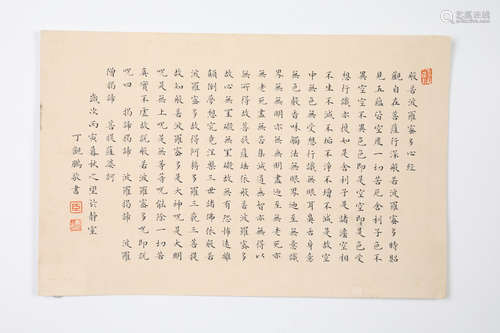 般若波羅蜜多心經
觀自在菩薩行深般若波羅蜜多時照
見五蘊皆空度一切苦厄舍利子色不
異空空不異色色即是空空即是色受
想行識亦復如是舍利子是諸法空相
不生不滅不垢不淨不增不減是故空
中無色無受想行識無眼耳鼻舌身意
無色聲香味觸法無眼界乃至無意識
界無無明亦無無明盡乃至無老死亦
無老死盡無苦集滅道無智亦無得以
無所得故菩提薩埵依般若波羅蜜多
故心無罣礙無罣礙故無有恐怖遠離
顛倒夢想究竟涅槃三世諸佛依般若
波羅蜜多故得阿耨多羅三藐三菩提
故知般若波羅蜜多是大神呪是大明
呪是無上呪是無等等呪能除一切苦
真實不虛故說般若波羅蜜多呪即說
呪曰 揭諦揭諦 波羅揭諦 波羅
僧揭諦 菩提薩婆訶
歲次丙寅暮秋之望於靜室
丁觀鵬敬書